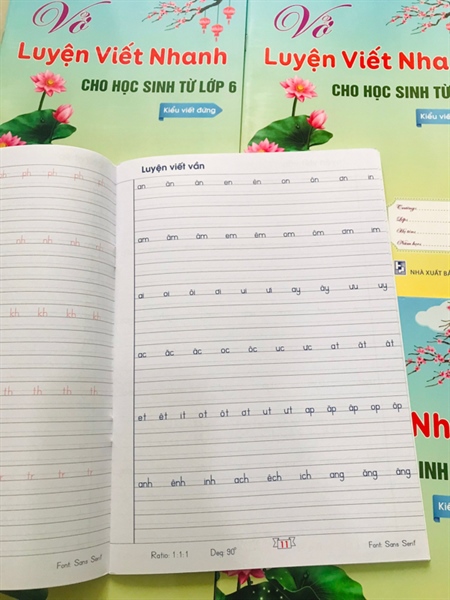 Vở
Luyện Viết Nhanh
CHO HỌC SINH TỪ LỚP 6
Kiểu viết đứng
Vở
Luyện Viết Nha
CHO HỌC SINH TỪ
Kiểu viế
Trường:
Lớp:
Họ tên:
Năm học:
NHÀ XUẤT BẢ
Nh
SINH T
Kiể
ph ph ph ph
nh nh nh nh
kh kh kh kh
th th th th
tr tr tr tr
Font: Sans Serif
Luyện viết vần
an ăn ân en ên on ôn ơn in
am ăm âm em êm om ôm ơm im
ai oi ôi ơi ui ưi ay ây ưu uy
ac ăc âc oc ôc uc ưc at ăt ât
et êt it ot ôt ơt ut ưt ap ăp âp op ôp
anh ênh inh ach êch ich ang ăng âng
Ratio: 1:1:1 Deg: 90° 11 Font: Sans Serif